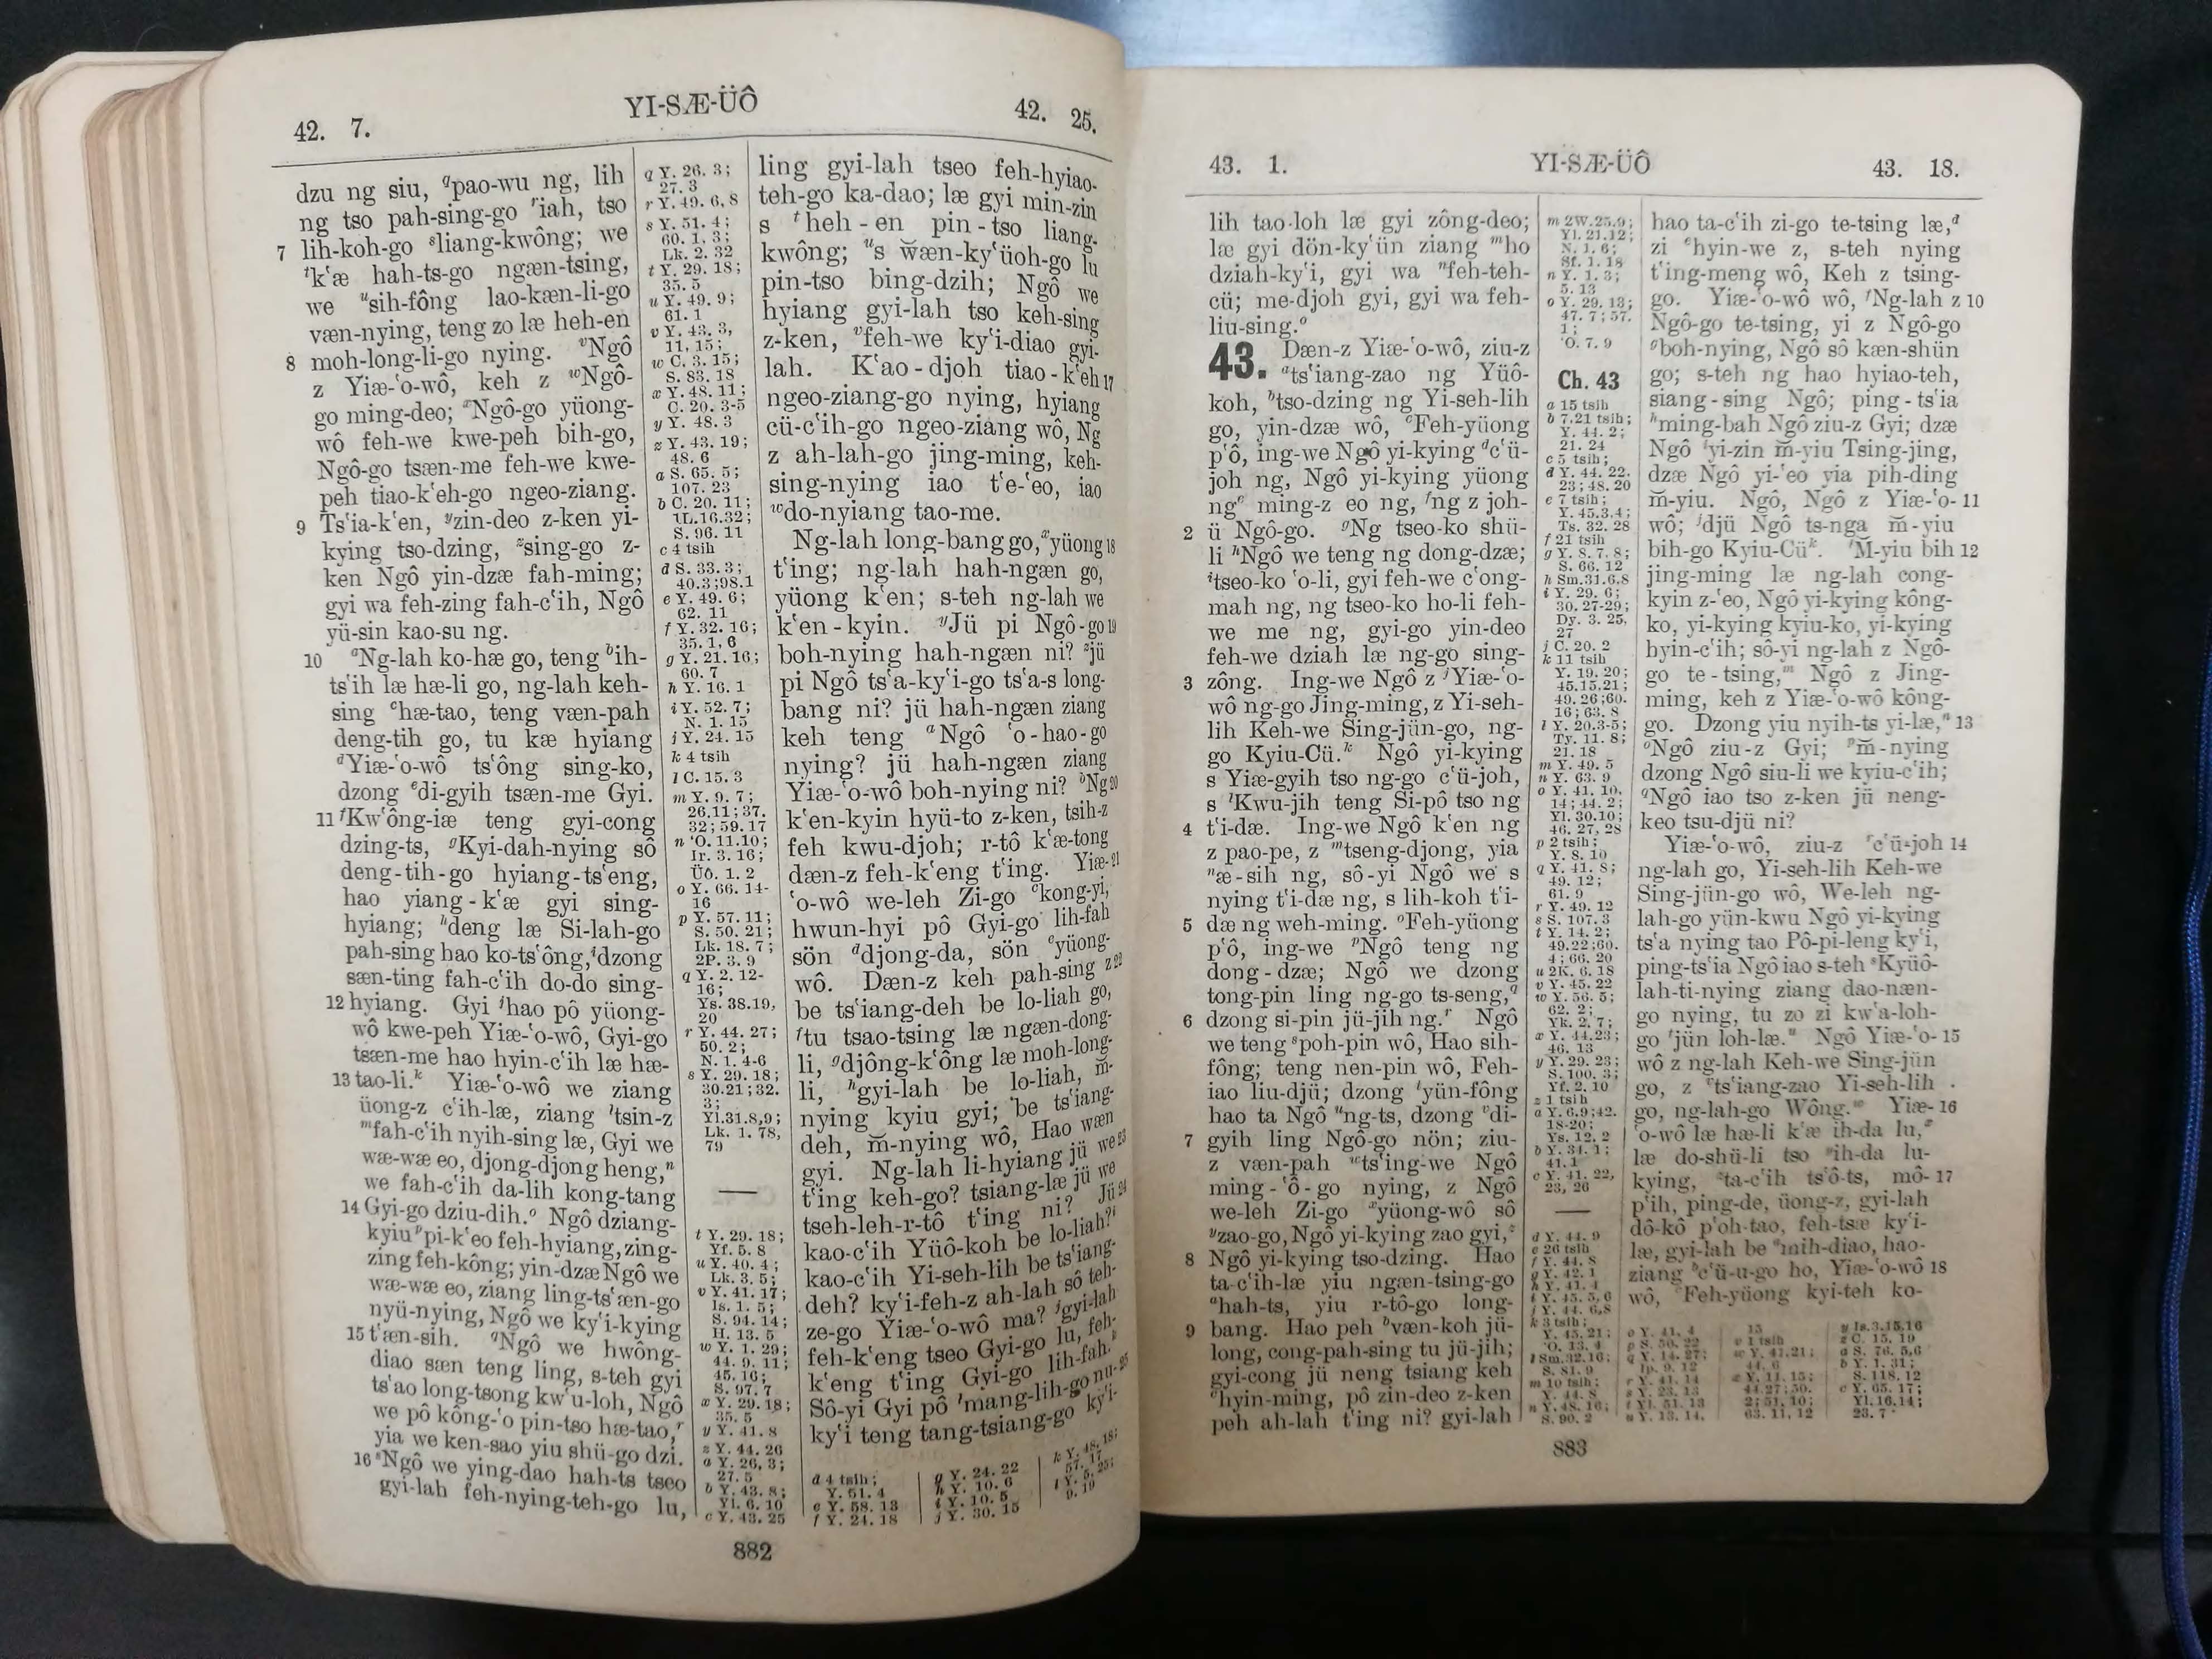 42. 7.
YI-SÆ-ÜÔ
42. 25.
dzu ng siu, qpao-wu ng, lih
ng tso pah-sing-go riah, tso
7 lih-koh-go sliang-kwông; we
tk‘æ hah-ts-go ngæn-tsing,
we usih-fông lao-kæn-li-go
væn-nying, teng zo læ heh-en
8 moh-long-li-go nying. vNgô
z Yiæ-‘o-wô, keh z wNgô-
go ming-deo; xNgô-go yüong-
wô feh-we kwe-peh bih-go,
Ngô-go tsæn-me feh-we kwe-
peh tiao-k‘eh-go ngeo-ziang.
9 Ts‘ia-k‘en, yzin-deo z-ken yi-
kying tso-dzing, zsing-go z-
ken Ngô yin-dzæ fah-ming;
gyi wa feh-zing fah-c‘ih, Ngô
yü-sin kao-su ng.
10 aNg-lah ko-hæ go, teng bih-
ts‘ih læ hæ-li go, ng-lah keh-
sing chæ-tao, teng væn-pah
deng-tih go, tu kæ hyiang
dYiæ-‘o-wô ts‘ông sing-ko,
dzong edi-gyih tsæn-me Gyi.
11 fKw‘ông-iæ teng gyi-cong
dzing-ts, gKyi-dah-nying sô
deng-tih-go hyiang-ts‘eng,
hao yiang-k‘æ gyi sing-
hyiang; hdeng læ Si-lah-go
pah-sing hao ko-ts‘ông, idzong
sæn-ting fah-c‘ih do-do sing-
12 hyiang. Gyi jhao pô yüong-
wô kwe-peh Yiæ-‘o-wô, Gyi-go
tsæn-me hao hyin-c‘ih læ hæ-
13 tao-li.k Yiæ-‘o-wô we ziang
üong-z c‘ih-læ, ziang ltsin-z
mfah-c‘ih nyih-sing læ, Gyi we
wæ-wæ eo, djong-djong heng,n
we fah-c‘ih da-lih kong-tang
14 Gyi-go dziu-dih.o Ngô dziang-
kyiu ppi-k‘eo feh-hyiang, zing-
zing feh-kông; yin-dzæ Ngô we
wæ-wæ eo, ziang ling-ts‘æn-go
nyü-nying, Ngô we ky‘i-kying
15 t‘æn-sih. qNgô we hwông-
diao sæn teng ling, s-teh gyi
ts‘ao long-tsong kw‘u-loh, Ngô
we pô kông-‘o pin-tso hæ-tao,r
yia we ken-sao yiu shü-go dzi.
16 sNgô we ying-dao hah-ts tseo
gyi-lah feh-nying-teh-go lu,
q Y. 26. 3;
27. 3
r Y. 49. 6, 8
s Y. 51. 4;
60. 1, 3;
Lk. 2. 32
t Y. 29. 18;
35. 5
u Y. 49. 9;
61. 1
v Y. 43. 3,
11, 15;
w C. 3. 15;
S. 83. 18
x Y. 48. 11;
C. 20. 3-5
y Y. 48. 3
z Y. 43. 19;
48. 6
a S. 65. 5;
107. 23
b C. 20. 11;
1L. 16. 32;
S. 96. 11
c 4 tsih
d S. 33. 3;
40. 3; 98. 1
e Y. 49. 6;
62. 11
f Y. 32. 16;
35. 1, 6
g Y. 21. 16;
60. 7
h Y. 16. 1
i Y. 52. 7;
N. 1. 15
j Y. 24. 15
k 4 tsih
l C. 15. 3
m Y. 9. 7;
26. 11; 37.
32; 59. 17
n ‘O. 11. 10;
Ir. 3. 16;
Üô. 1. 2
o Y. 66. 14-
16
p Y. 57. 11;
S. 50. 21;
Lk. 18. 7;
2P. 3. 9
q Y. 2. 12-
16;
Ys. 38. 19,
20
r Y. 44. 27;
50. 2;
N. 1. 4-6
s Y. 29. 18;
30. 21; 32.
3;
Yl. 31. 8, 9;
Lk. 1. 78,
79
t Y. 29. 18;
Yf. 5. 8
u Y. 40. 4;
Lk. 3. 5;
v Y. 41. 17;
Is. 1. 5;
S. 94. 14;
H. 13. 5
w Y. 1. 29;
44. 9, 11;
45. 16;
S. 97. 7
x Y. 29. 18;
35. 5
y Y. 41. 8
z Y. 44. 26
a Y. 26. 3;
27. 5
b Y. 43. 8;
Yl. 6. 10
c Y. 43. 25
ling gyi-lah tseo feh-hyiao-
teh-go ka-dao; læ gyi min-zin
s theh-en pin-tso liang-
kwông; us wæn-ky‘üoh-go lu
pin-tso bing-dzih; Ngô we
hyiang gyi-lah tso keh-sing
z-ken, vfeh-we ky‘i-diao gyi-
lah. K‘ao-djoh tiao-k‘eh 17
ngeo-ziang-go nying, hyiang
cü-c‘ih-go ngeo-ziang wô, Ng
z ah-lah-go jing-ming, keh-
sing-nying iao t‘e-‘eo, iao
wdo-nyiang tao-me.
Ng-lah long-bang go, xyüong 18
t‘ing; ng-lah hah-ngæn go,
yüong k‘en; s-teh ng-lah we
k‘en-kyin. yJü pi Ngô-go 19
boh-nying hah-ngæn ni? zjü
pi Ngô ts‘a-ky‘i-go ts‘a-s long-
bang ni? jü hah-ngæn ziang
keh teng aNgô ‘o-hao-go
nying? jü hah-ngæn ziang
Yiæ-‘o-wô boh-nying ni? bNg 20
k‘en-kyin hyü-to z-ken, tsih-z
feh kwu-djoh; r-tô k‘æ-tong
dæn-z feh-k‘eng t‘ing. Yiæ- 21
‘o-wô we-leh Zi-go ckong-yi,
hwun-hyi pô Gyi-go lih-fah
sön ddjong-da, sön eyüong-
wô. Dæn-z keh pah-sing z 22
be ts‘iang-deh be lo-liah go,
ftu tsao-tsing læ ngæn-dong-
li, gdjông-k‘ông læ moh-long-
li, hgyi-lah be lo-liah, m̆-
nying kyiu gyi; be ts‘iang-
deh, m̆-nying wô, Hao wæn
gyi. Ng-lah li-hyiang jü we 23
t‘ing keh-go? tsiang-læ jü we
tseh-leh-r-tô t‘ing ni? Jü 24
kao-c‘ih Yüô-koh be lo-liah?i
kao-c‘ih Yi-seh-lih be ts‘iang-
deh? ky‘i-feh-z ah-lah sô teh-
ze-go Yiæ-‘o-wô ma? jgyi-lah
feh-k‘eng tseo Gyi-go lu, feh-
k‘eng t‘ing Gyi-go lih-fah.k
Sô-yi Gyi pô lmang-lih-go nu- 25
ky‘i teng tang-tsiang-go ky‘i-
d 4 tsih;
Y. 51. 4
e Y. 58. 13
f Y. 24. 18
g Y. 24. 22
h Y. 10. 6
i Y. 10. 5
j Y. 30. 15
k Y. 48. 18;
57. 17
l Y. 5. 25;
9. 19
882
43. 1.
YI-SÆ-ÜÔ
43. 18.
lih tao-loh læ gyi zông-deo;
læ gyi dön-ky‘ün ziang mho
dziah-ky‘i, gyi wa nfeh-teh-
cü; me-djoh gyi, gyi wa feh-
liu-sing.o
43. Dæn-z Yiæ-‘o-wô, ziu-z
ats‘iang-zao ng Yüô-
koh, btso-dzing ng Yi-seh-lih
go, yin-dzæ wô, cFeh-yüong
p‘ô, ing-we Ngô yi-kying dc‘ü-
joh ng, Ngô yi-kying yüong
nge ming-z eo ng, fng z joh-
2 ü Ngô-go. gNg tseo-ko shü-
li hNgô we teng ng dong-dzæ;
itseo-ko ‘o-li, gyi feh-we c‘ong-
mah ng, ng tseo-ko ho-li feh-
we me ng, gyi-go yin-deo
feh-we dziah læ ng-go sing-
3 zông. Ing-we Ngô z jYiæ-‘o-
wô ng-go Jing-ming, z Yi-seh-
lih Keh-we Sing-jün-go, ng-
go Kyiu-Cü.k Ngô yi-kying
s Yiæ-gyih tso ng-go c‘ü-joh,
s lKwu-jih teng Si-pô tso ng
4 t‘i-dæ. Ing-we Ngô k‘en ng
z pao-pe, z mtseng-djong, yia
næ-sih ng, sô-yi Ngô we s
nying t‘i-dæ ng, s lih-koh t‘i-
5 dæ ng weh-ming. oFeh-yüong
p‘ô, ing-we pNgô teng ng
dong-dzæ; Ngô we dzong
tong-pin ling ng-go ts-seng,q
6 dzong si-pin jü-jih ng.r Ngô
we teng spoh-pin wô, Hao sih-
fông; teng nen-pin wô, Feh-
iao liu-djü; dzong tyün-fông
hao ta Ngô ung-ts, dzong vdi-
7 gyih ling Ngô-go nön; ziu-
z væn-pah wts‘ing-we Ngô
ming-‘ô-go nying, z Ngô
we-leh Zi-go xyüong-wô sô
yzao-go, Ngô yi-kying zao gyi,z
8 Ngô yi-kying tso-dzing. Hao
ta-c‘ih-læ yiu ngæn-tsing-go
ahah-ts, yiu r-tô-go long-
9 bang. Hao peh bvæn-koh jü-
long, cong-pah-sing tu jü-jih;
gyi-cong jü neng tsiang keh
chyin-ming, pô zin-deo z-ken
peh ah-lah t‘ing ni? gyi-lah
m 2W. 25. 9;
Yl. 21. 12;
N. 1. 6;
Sf. 1. 18
n Y. 1. 3;
5. 13
o Y. 29. 13;
47. 7; 57.
1;
‘O. 7. 9
Ch. 43
a 15 tsih
b 7, 21 tsih;
Y. 44. 2;
21. 24
c 5 tsih;
d Y. 44. 22,
23; 48. 20
e 7 tsih;
Y. 45. 3, 4;
Ts. 32. 28
f 21 tsih
g Y. 8. 7, 8;
S. 66. 12
h Sm. 31. 6, 8
i Y. 29. 6;
30. 27-29;
Dy. 3. 25,
27
j C. 20. 2
k 11 tsih
Y. 19. 20;
45. 15, 21;
49. 26; 60.
16; 63. 8
l Y. 20. 3-5;
Ty. 11. 8;
21. 18
m Y. 49. 5
n Y. 63. 9
o Y. 41. 10,
14; 44. 2;
Yl. 30. 10;
46. 27, 28
p 2 tsih;
Y. 8. 10
q Y. 41. 8;
49. 12;
61. 9
r Y. 49. 12
s S. 107. 3
t Y. 14. 2;
49. 22; 60.
4; 66. 20
u 2K. 6. 18
v Y. 45. 22
w Y. 56. 5;
62. 2;
Yk. 2. 7;
x Y. 44. 23;
46. 13
y Y. 29. 23;
S. 100. 3;
Yf. 2. 10
z 1 tsih
a Y. 6. 9; 42.
18-20;
Ys. 12. 2
b Y. 34. 1;
41. 1
c Y. 41. 22,
23, 26
d Y. 44. 9
e 26 tsih
f Y. 44. 8
g Y. 42. 1
h Y. 41. 4
i Y. 45. 5, 6
j Y. 44. 6, 8
k 3 tsih;
Y. 45. 21;
‘O. 13. 4
l Sm. 32. 16;
S. 81. 9
m 10 tsih;
Y. 44. 8
n Y. 48. 16;
S. 90. 2
hao ta-c‘ih zi-go te-tsing læ,d
zi ehyin-we z, s-teh nying
t‘ing-meng wô, Keh z tsing-
go. Yiæ-‘o-wô wô, fNg-lah z 10
Ngô-go te-tsing, yi z Ngô-go
gboh-nying, Ngô sô kæn-shün
go; s-teh ng hao hyiao-teh,
siang-sing Ngô; ping-ts‘ia
hming-bah Ngô ziu-z Gyi; dzæ
Ngô iyi-zin m̆-yiu Tsing-jing,
dzæ Ngô yi-‘eo yia pih-ding
m̆-yiu. Ngô, Ngô z Yiæ-‘o- 11
wô; jdjü Ngô ts-nga m̆-yiu
bih-go Kyiu-Cük. lM̆-yiu bih 12
jing-ming læ ng-lah cong-
kyin z-‘eo, Ngô yi-kying kông-
ko, yi-kying kyiu-ko, yi-kying
hyin-c‘ih; sô-yi ng-lah z Ngô-
go te-tsing,m Ngô z Jing-
ming, keh z Yiæ-‘o-wô kông-
go. Dzong yiu nyih-ts yi-læ,n 13
oNgô ziu-z Gyi; pm̆-nying
dzong Ngô siu-li we kyiu-c‘ih;
qNgô iao tso z-ken jü neng-
keo tsu-djü ni?
Yiæ-‘o-wô, ziu-z rc‘ü-joh 14
ng-lah go, Yi-seh-lih Keh-we
Sing-jün-go wô, We-leh ng-
lah-go yün-kwu Ngô yi-kying
ts‘a nying tao Pô-pi-leng ky‘i,
ping-ts‘ia Ngô iao s-teh sKyüô-
lah-ti-nying ziang dao-næn-
go nying, tu zo zi kw‘a-loh-
go tjün loh-læ.u Ngô Yiæ-‘o- 15
wô z ng-lah Keh-we Sing-jün
go, z vts‘iang-zao Yi-seh-lih
go, ng-lah-go Wông.w Yiæ- 16
‘o-wô læ hæ-li k‘æ ih-da lu,x
læ do-shü-li tso yih-da lu-
kying, zta-c‘ih ts‘ô-ts, mô- 17
p‘ih, ping-de, üong-z, gyi-lah
dô-kô p‘oh-tao, feh-tsæ ky‘i-
læ, gyi-lah be amih-diao, hao-
ziang bc‘ü-u-go ho, Yiæ-‘o-wô 18
wô, cFeh-yüong kyi-teh ko-
o Y. 41. 4
p S. 50. 22
q Y. 14. 27;
Ip. 9. 12
r Y. 41. 14
s Y. 23. 13
t Yl. 51. 13
u Y. 13. 14,
15
v 1 tsih
w Y. 41. 21;
44. 6
x Y. 11. 15;
44. 27; 50.
2; 51. 10;
63. 11, 12
y Is. 3. 15, 16
z C. 15. 19
a S. 76. 5, 6
b Y. 1. 31;
S. 118. 12
c Y. 65. 17;
Yl. 16. 14;
23. 7
883